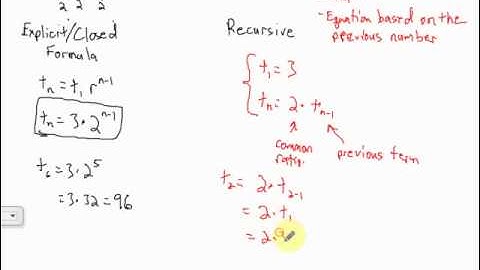 2 2 2
Explicit/Closed
Formula
tₙ = t₁ rⁿ⁻¹
tₙ = 3 · 2ⁿ⁻¹
t₆ = 3 · 2⁵
= 3 · 32 = 96
- Equation based on the
previous number
Recursive
t₁ = 3
tₙ = 2 · tₙ₋₁
common
ratio.
previous term
t₂ = 2 · t₂₋₁
= 2 · t₁
= 2 ·